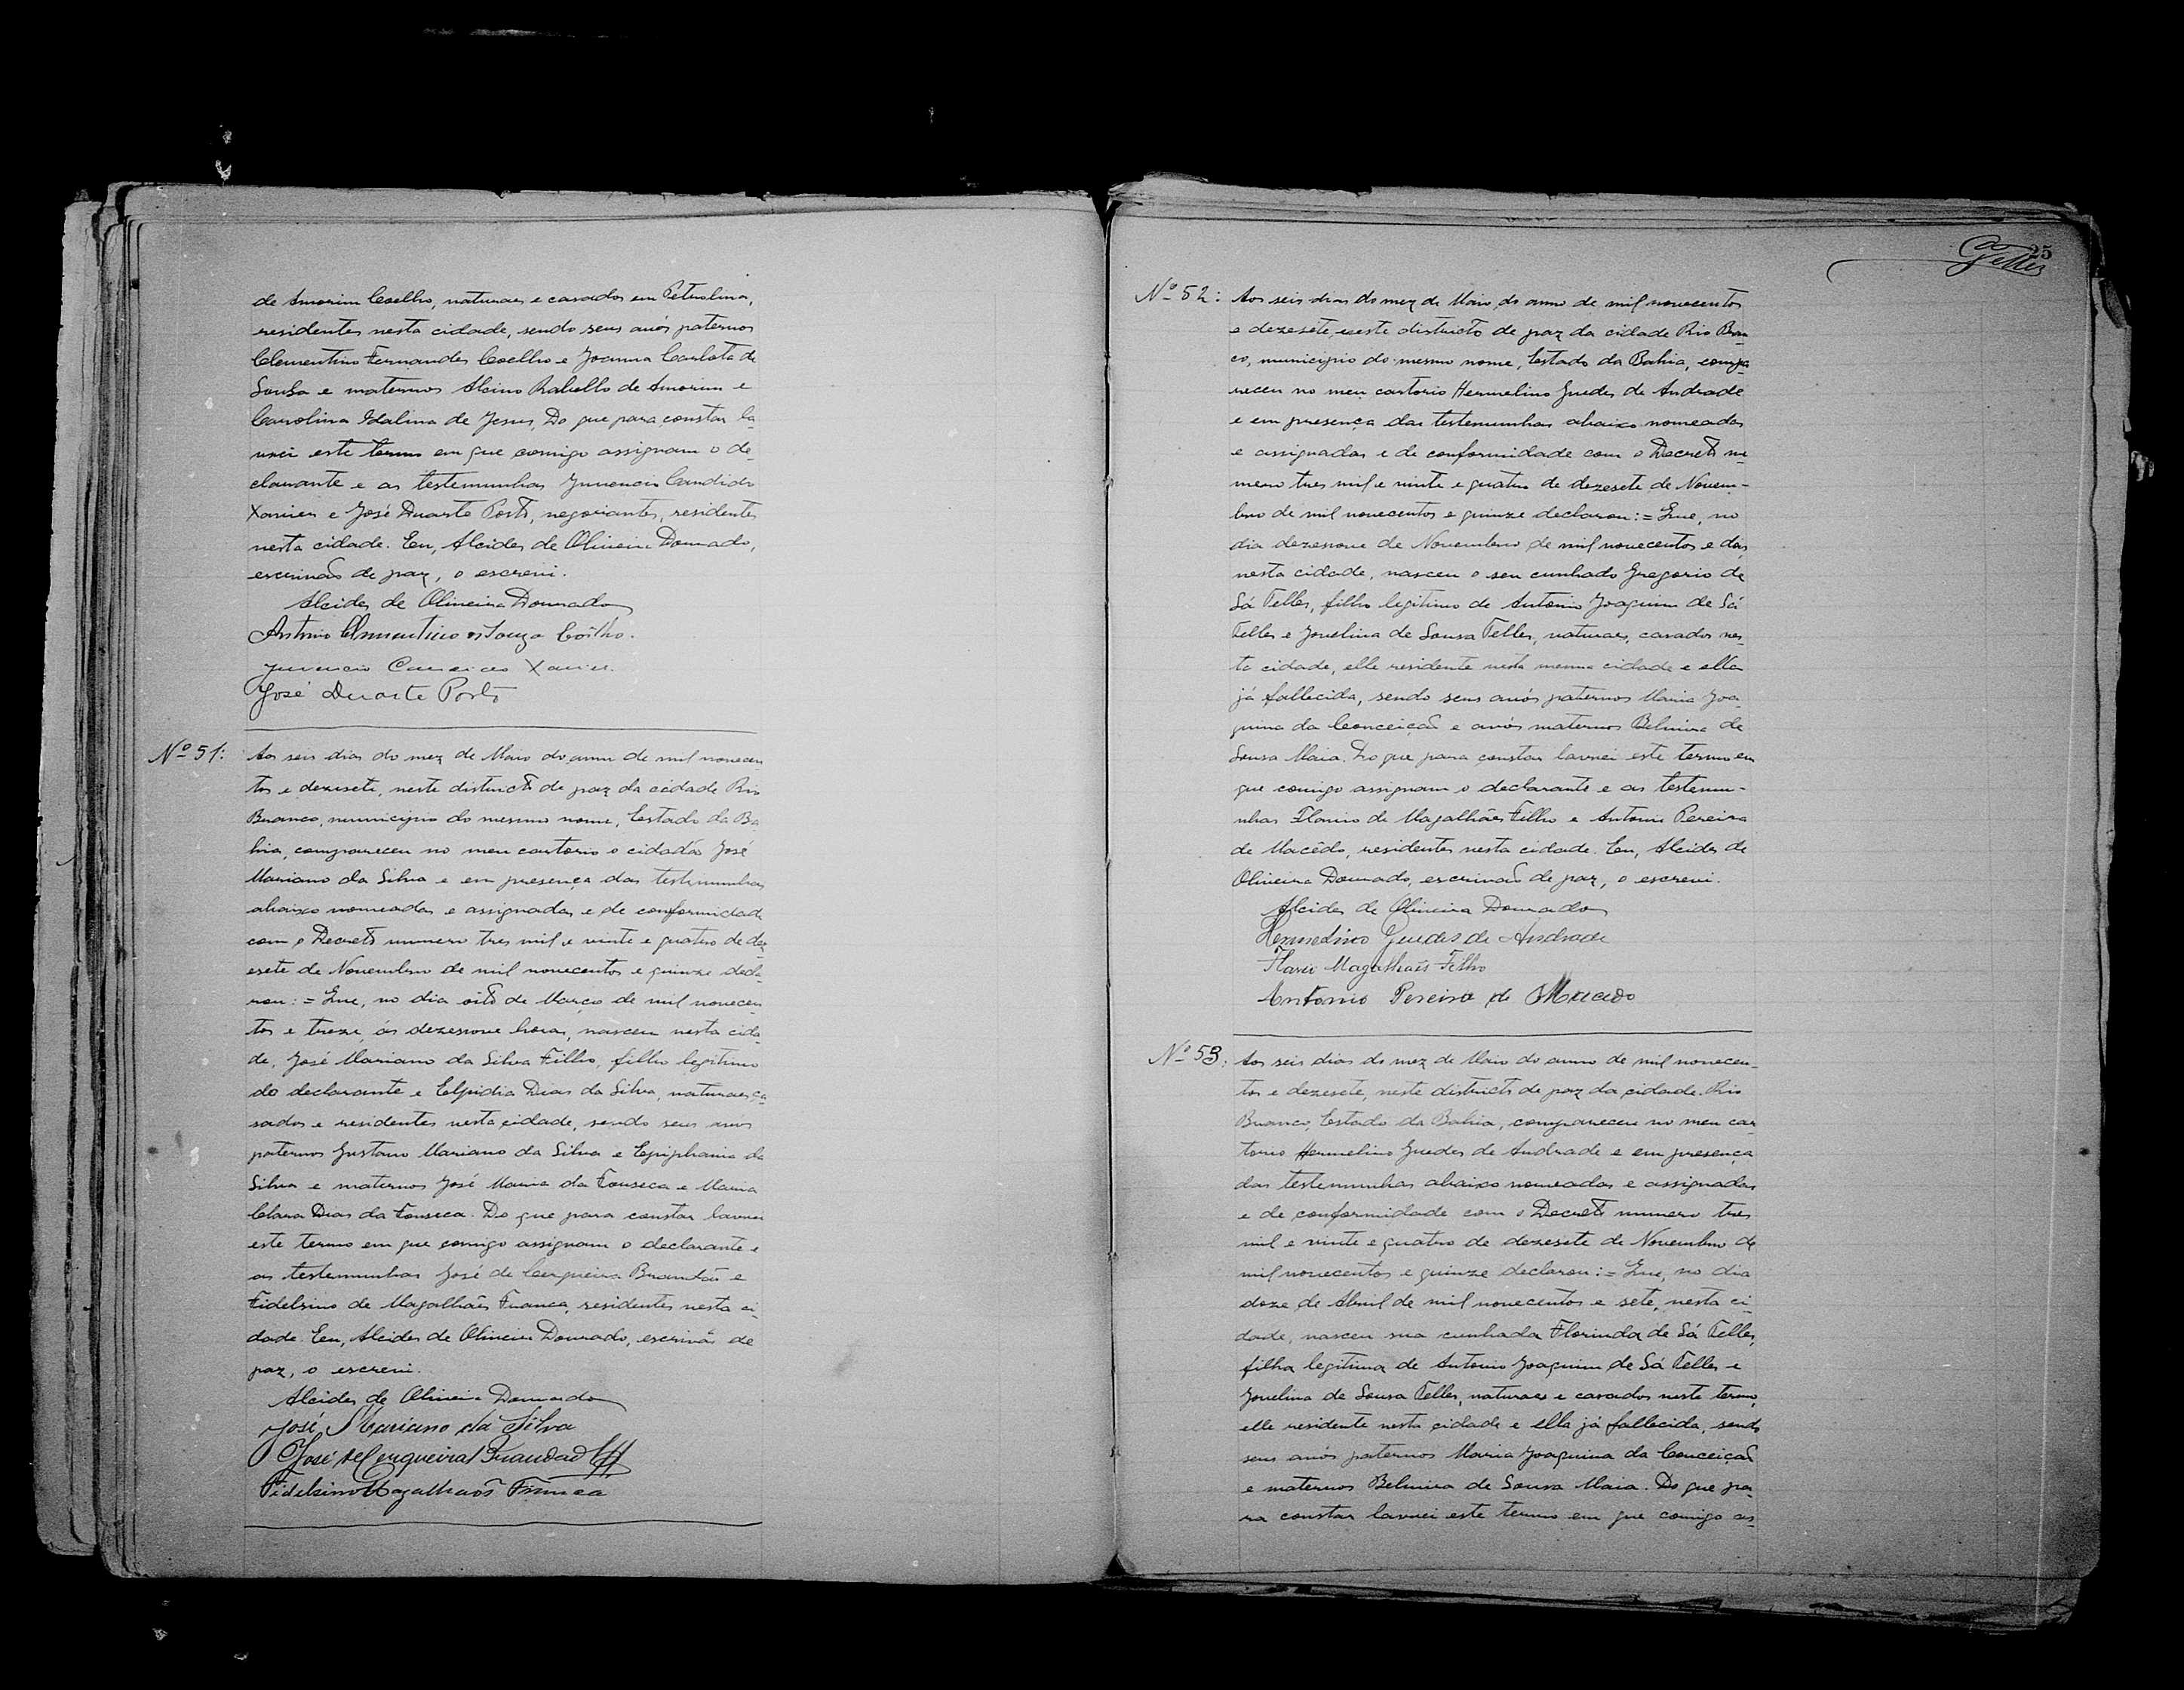 de Amorim Coelho, naturaes e casados em Petrolina,
residentes nesta cidade, sendo seus avós paternos
Clementino Fernandes Coelho e Joanna Carlota de
Sousa e maternos Alcino Rabello de Amorim e
Carolina Idalina de Jesus. Do que para constar la-
vrei este termo em que comigo assignam o de-
clarante e as testemunhas Juvencio Candido
Xavier e José Duarte Porto, negociantes, residentes
nesta cidade. Eu, Alcides de Oliveira Dourado,
escrivão de paz, o escrevi.
Alcides de Oliveira Dourado
Antonio Clementino de Souza Coêlho.
Juvencio Candido Xavier.
José Duarte Porto
Nº 51:
Aos seis dias do mez de Maio do anno de mil novecen
tos e dezesete, neste districto de paz da cidade Rio
Branco, municipio do mesmo nome, Estado da Ba
hia, compareceu no meu cartorio o cidadão José
Mariano da Silva e em presença das testemunhas
abaixo nomeadas e assignadas e de conformidade
com o Decreto numero tres mil e vinte e quatro de dez
esete de Novembro de mil novecentos e quinze decla
rou: = Que, no dia oito de Março de mil novecen
tos e treze, ás dezenove horas, nasceu nesta cida
de, José Mariano da Silva Filho, filho legitimo
do declarante e Elpidia Dias da Silva, naturaes, ca
sados e residentes nesta cidade, sendo seus avos
paternos Gustavo Mariano da Silva e Epiphania da
Silva e maternos José Maria da Fonseca e Maria
Clara Dias da Fonseca. Do que para constar lavrei
este termo em que comigo assignam o declarante e
as testemunhas José de Cerqueira Brandão e
Fidelsino de Magalhães Franca, residentes nesta ci
dade. Eu, Alcides de Oliveira Dourado, escrivão de
paz, o escrevi.
Alcides de Oliveira Dourado
José Mariano da Silva
José de Cerqueira Brandão
Fidelsino Magalhaõs Franca
25
Telles
Nº 52:
Aos seis dias do mez de Maio do anno de mil novecentos
e dezesete, neste districto de paz da cidade Rio Bran
co, municipio do mesmo nome, Estado da Bahia, compa
receu no meu cartorio Hermelino Guedes de Andrade
e em presença das testemunhas abaixo nomeadas
e assignadas e de conformidade com o Decreto nu-
mero tres mil e vinte e quatro de dezesete de Novem-
bro de mil novecentos e quinze declarou: = Que, no
dia dezenove de Novembro de mil novecentos e dois
nesta cidade, nasceu o seu cunhado Gregorio de
Sá Telles, filho legitimo de Antonio Joaquim de Sá
Telles e Jovelina de Sousa Telles, naturaes, casados nes
ta cidade, elle residente nesta mesma cidade e ella
já fallecida, sendo seus avós paternos Maria Joa-
quina da Conceição e avós maternos Belmira de
Sousa Maia. Do que para constar lavrei este termo em
que comigo assignam o declarante e as testemu-
nhas Flavio de Magalhães Filho e Antonio Pereira
de Macêdo, residentes nesta cidade. Eu, Alcides de
Oliveira Dourado, escrivão de paz, o escrevi.
Alcides de Oliveira Dourado
Hermelino Guedes de Andrade
Flavio Magalhaẽs Filho
Antonio Pereira de Macedo
Nº 53:
Aos seis dias do mez de Maio do anno de mil novecen-
tos e dezesete, neste districto de paz da cidade Rio
Branco, Estado da Bahia, compareceu no meu car
torio Hermelino Guedes de Andrade e em presença
das testemunhas abaixo nomeadas e assignadas
e de conformidade com o Decreto numero tres
mil e vinte e quatro de dezesete de Novembro de
mil novecentos e quinze declarou: = Que, no dia
doze de Abril de mil novecentos e sete, nesta ci-
dade, nasceu sua cunhada Florinda de Sá Telles,
filha legitima de Antonio Joaquim de Sá Telles e
Jovelina de Sousa Telles, naturaes e casados neste termo,
elle residente nesta cidade e ella já fallecida, sendo
seus avós paternos Maria Joaquina da Conceição
e maternos Belmira de Sousa Maia. Do que pa-
ra constar lavrei este termo em que comigo as-